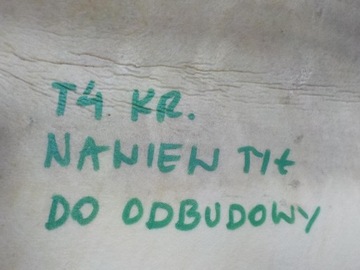 T4 KR.
NANIEN TYŁ
DO ODBUDOWY